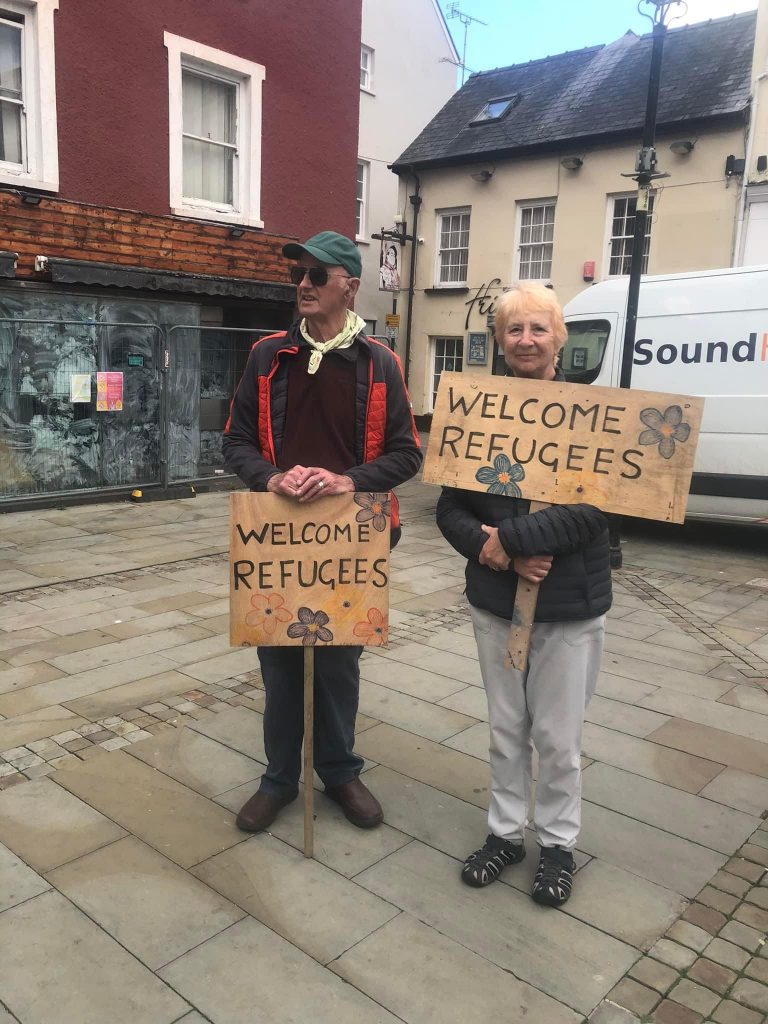 WELCOME
REFUGEES
WELCOME
REFUGEES
Sound